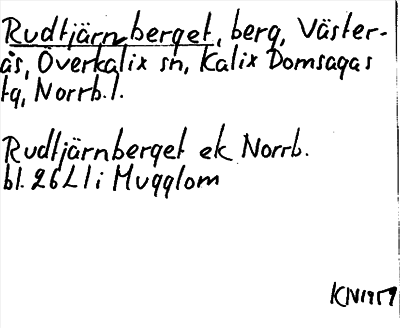 Rudtjärnberget, berg, Väster-
ås, Överkalix sn, Kalix Domsagas
tg, Norrb. l.
Rudtjärnberget ek Norrb.
bl. 26 L 1 i Mugglom
KN 1959